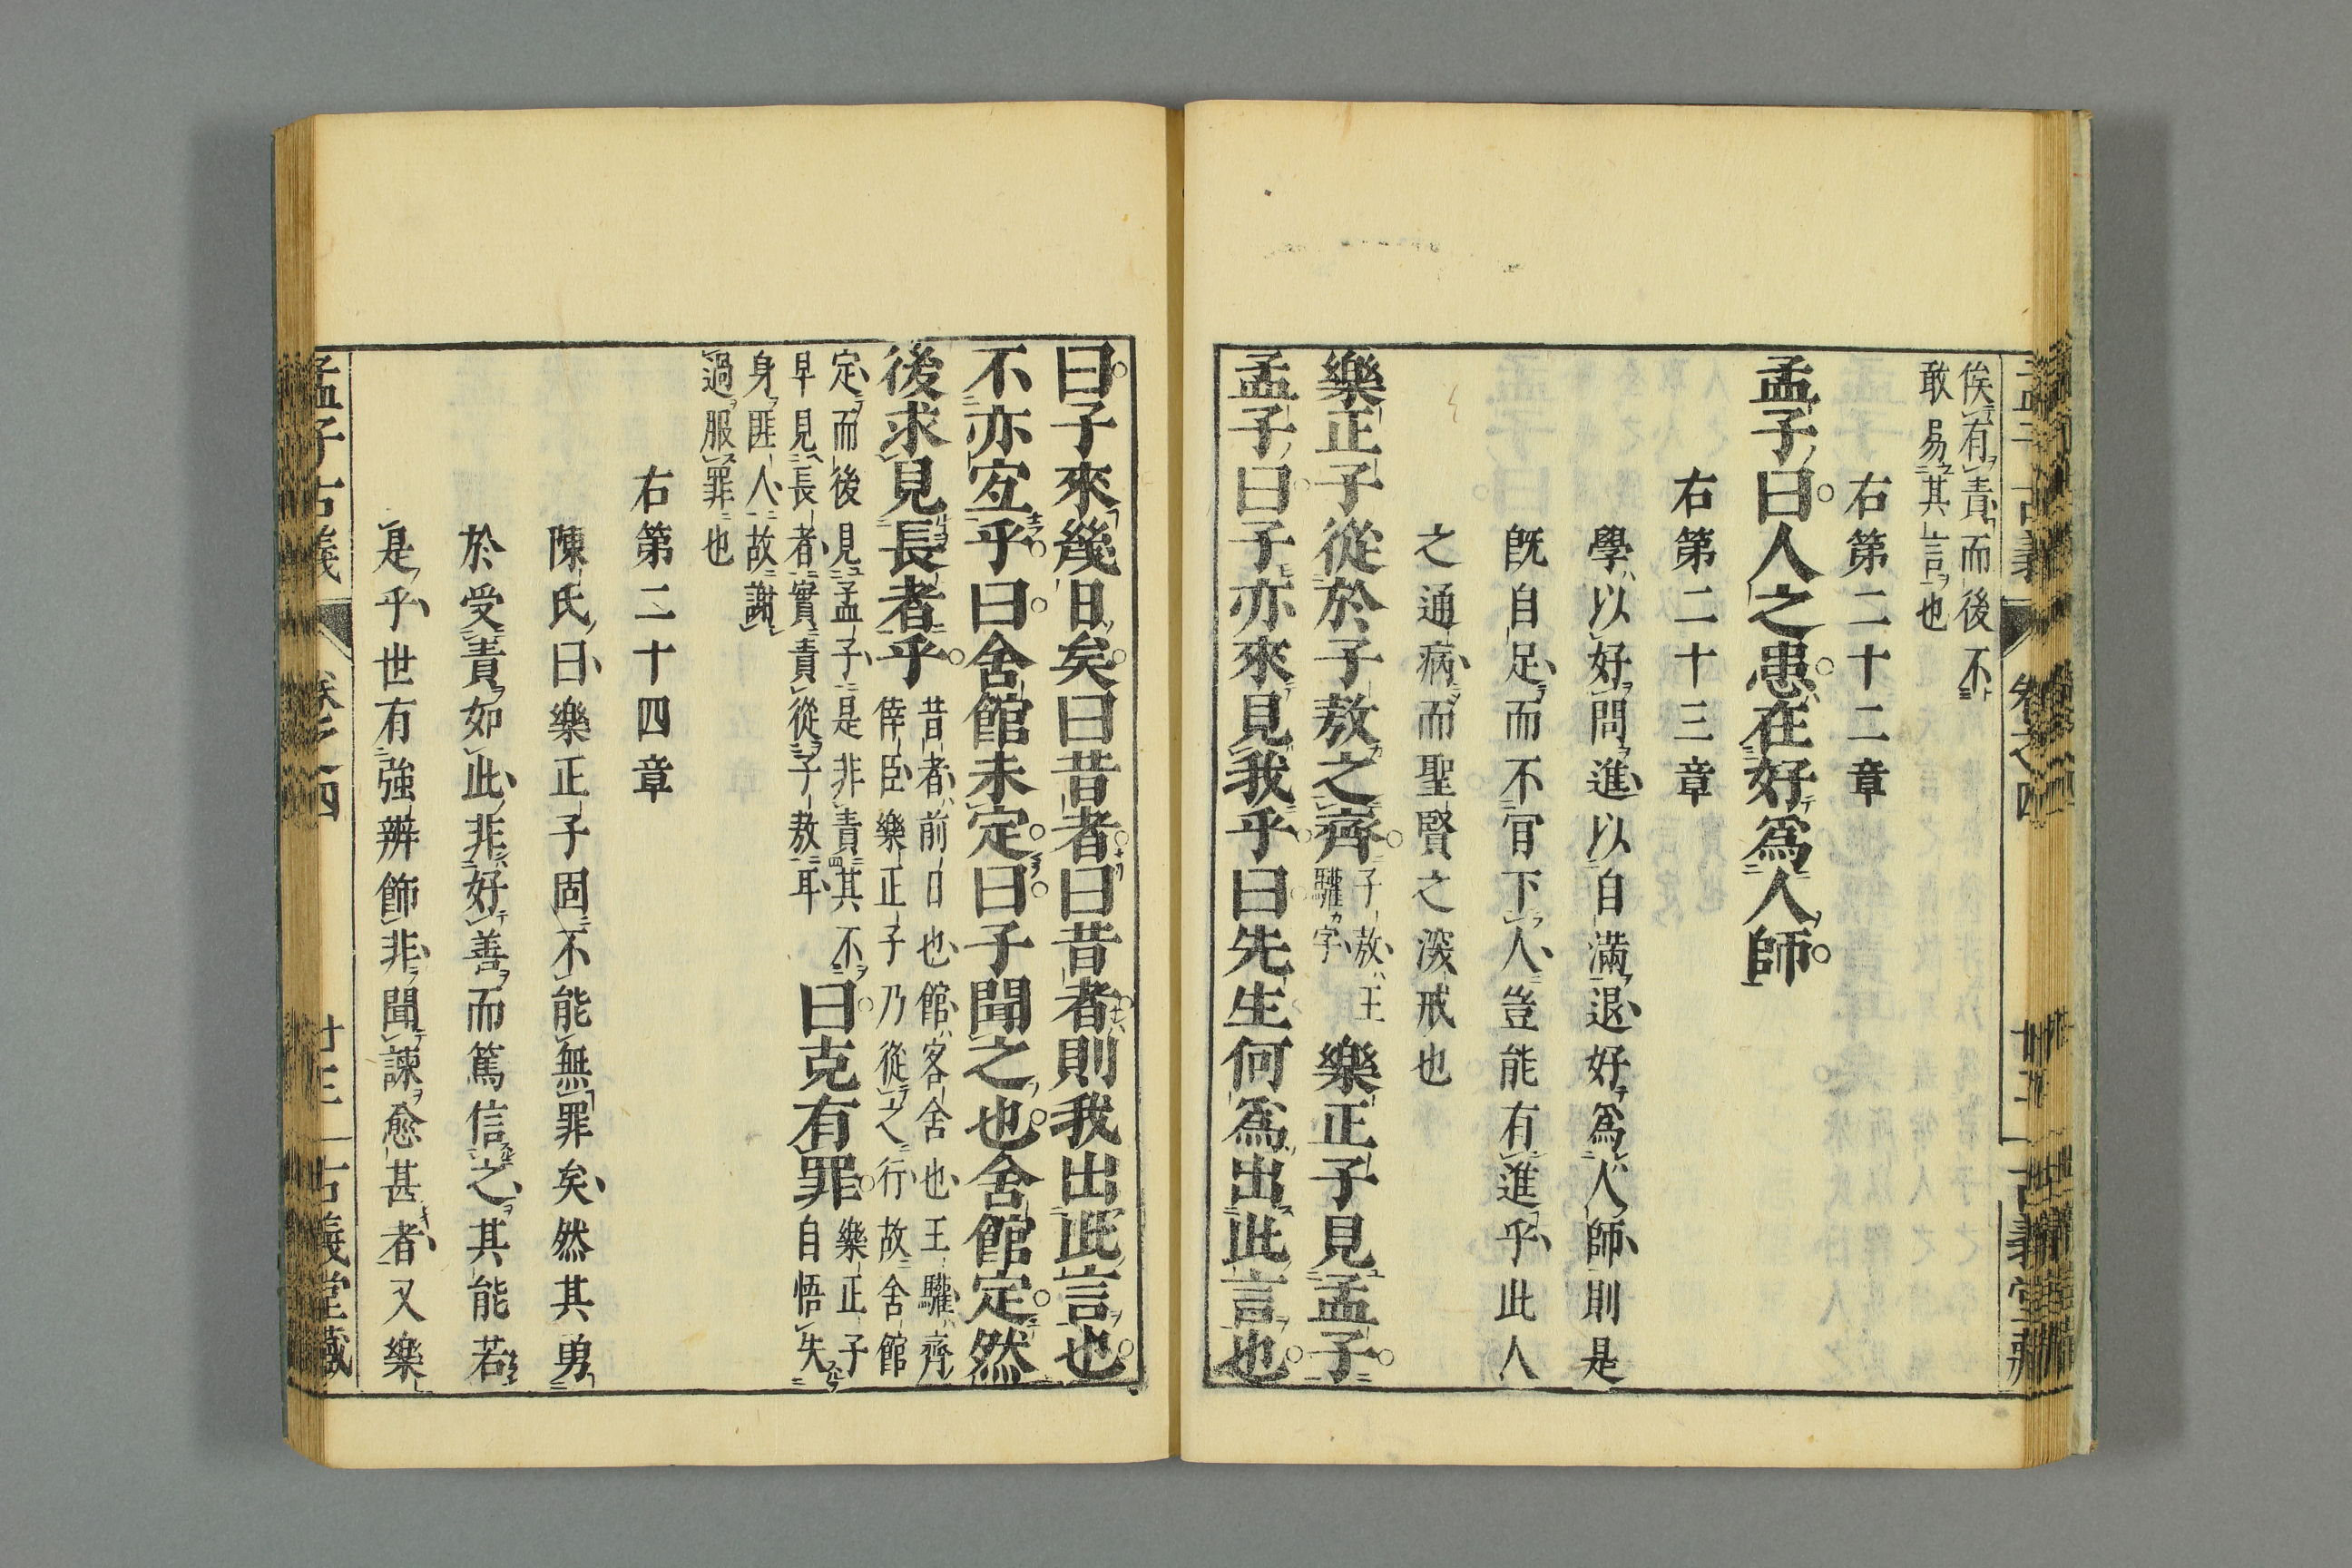 俟有責而後不
敢易其言也
右第二十二章
孟子曰人之患在好爲人師
右第二十三章
學以好問進以自滿退好爲人師則是
旣自足而不肯下人豈能有進乎此人
之通病而聖賢之深戒也
樂正子從於子敖之齊
子敖王
驩字
樂正子見孟子
孟子曰子亦來見我乎曰先生何爲出此言也
曰子來幾日矣曰昔者曰昔者則我出此言也
不亦宜乎曰舍館未定曰子聞之也舍館定然
後求見長者乎
昔者前日也館客舍也王驩齊
倖臣樂正子乃從之行故舍館
定而後見孟子是非責其不
早見長者實責從子敖耳
曰克有罪
樂正子
自悟失
身匪人故謝
過服罪也
右第二十四章
陳氏曰樂正子固不能無罪矣然其勇
於受責如此非好善而篤信之其能若
是乎世有強辨飾非聞諫愈甚者又樂
孟子古義 卷之四 廿三 古義堂藏